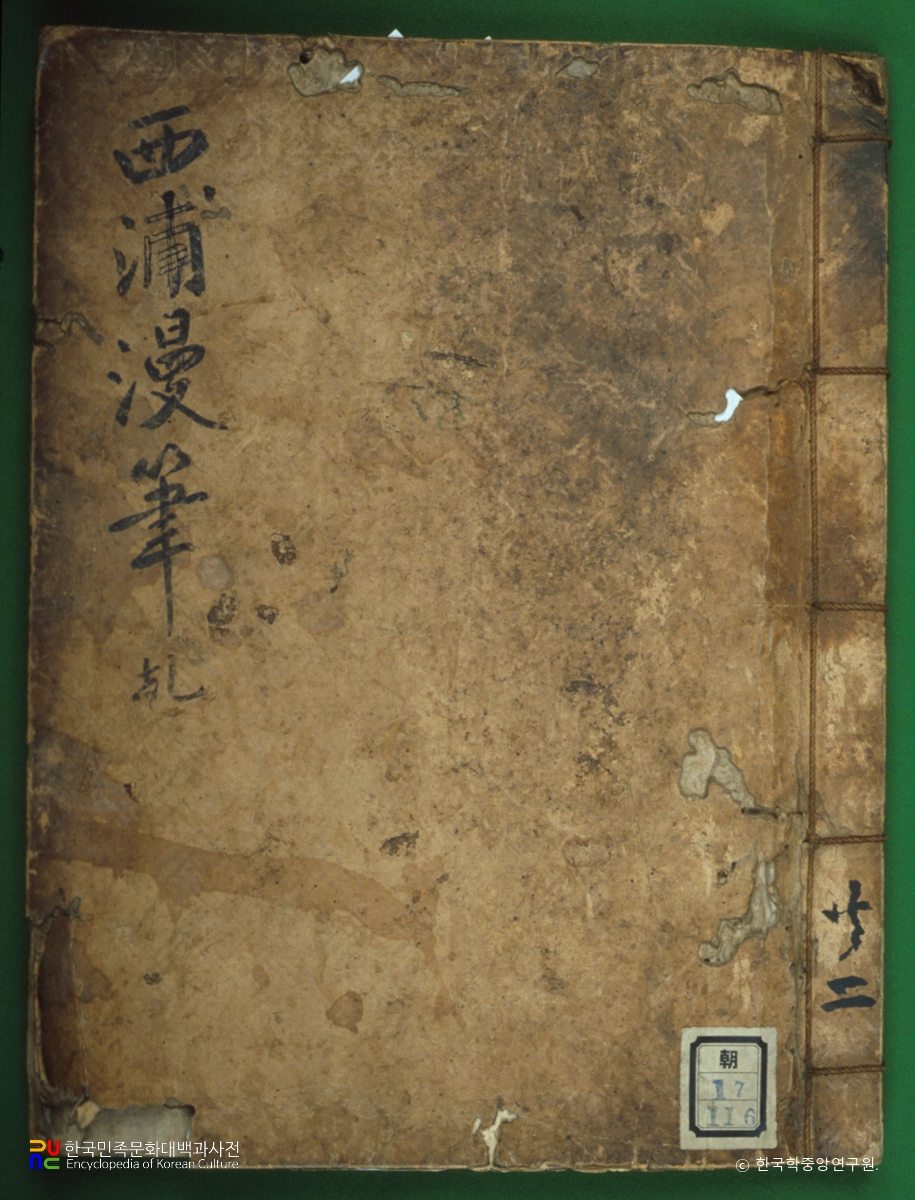 西浦漫筆 乹
共二
朝
17
116
한국민족문화대백과사전
Encyclopedia of Korean Culture
© 한국학중앙연구원.